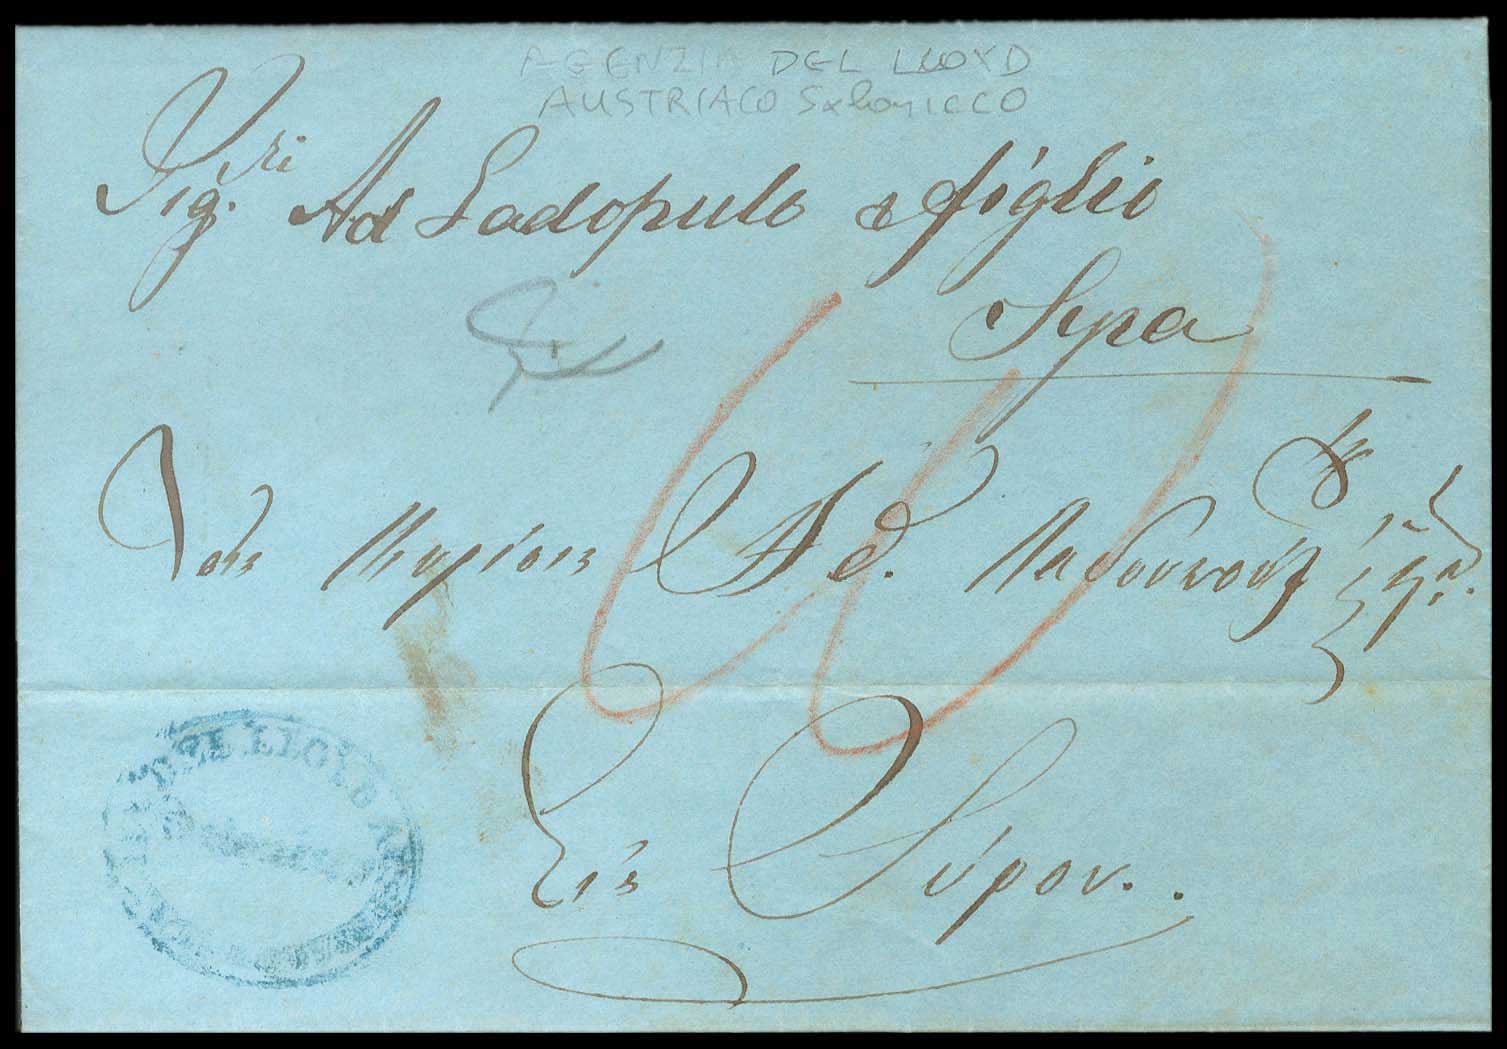 AGENZIA DEL LLOYD
AUSTRIACO Salonicco
Sig.ri Ad Ladopulo & figlio
Syra
Τοῖς Κυρίοις Ἀδ. Λαδοπούλῳ
Εἰς Σύρον.
DEL LLOYD AUSTRIACO